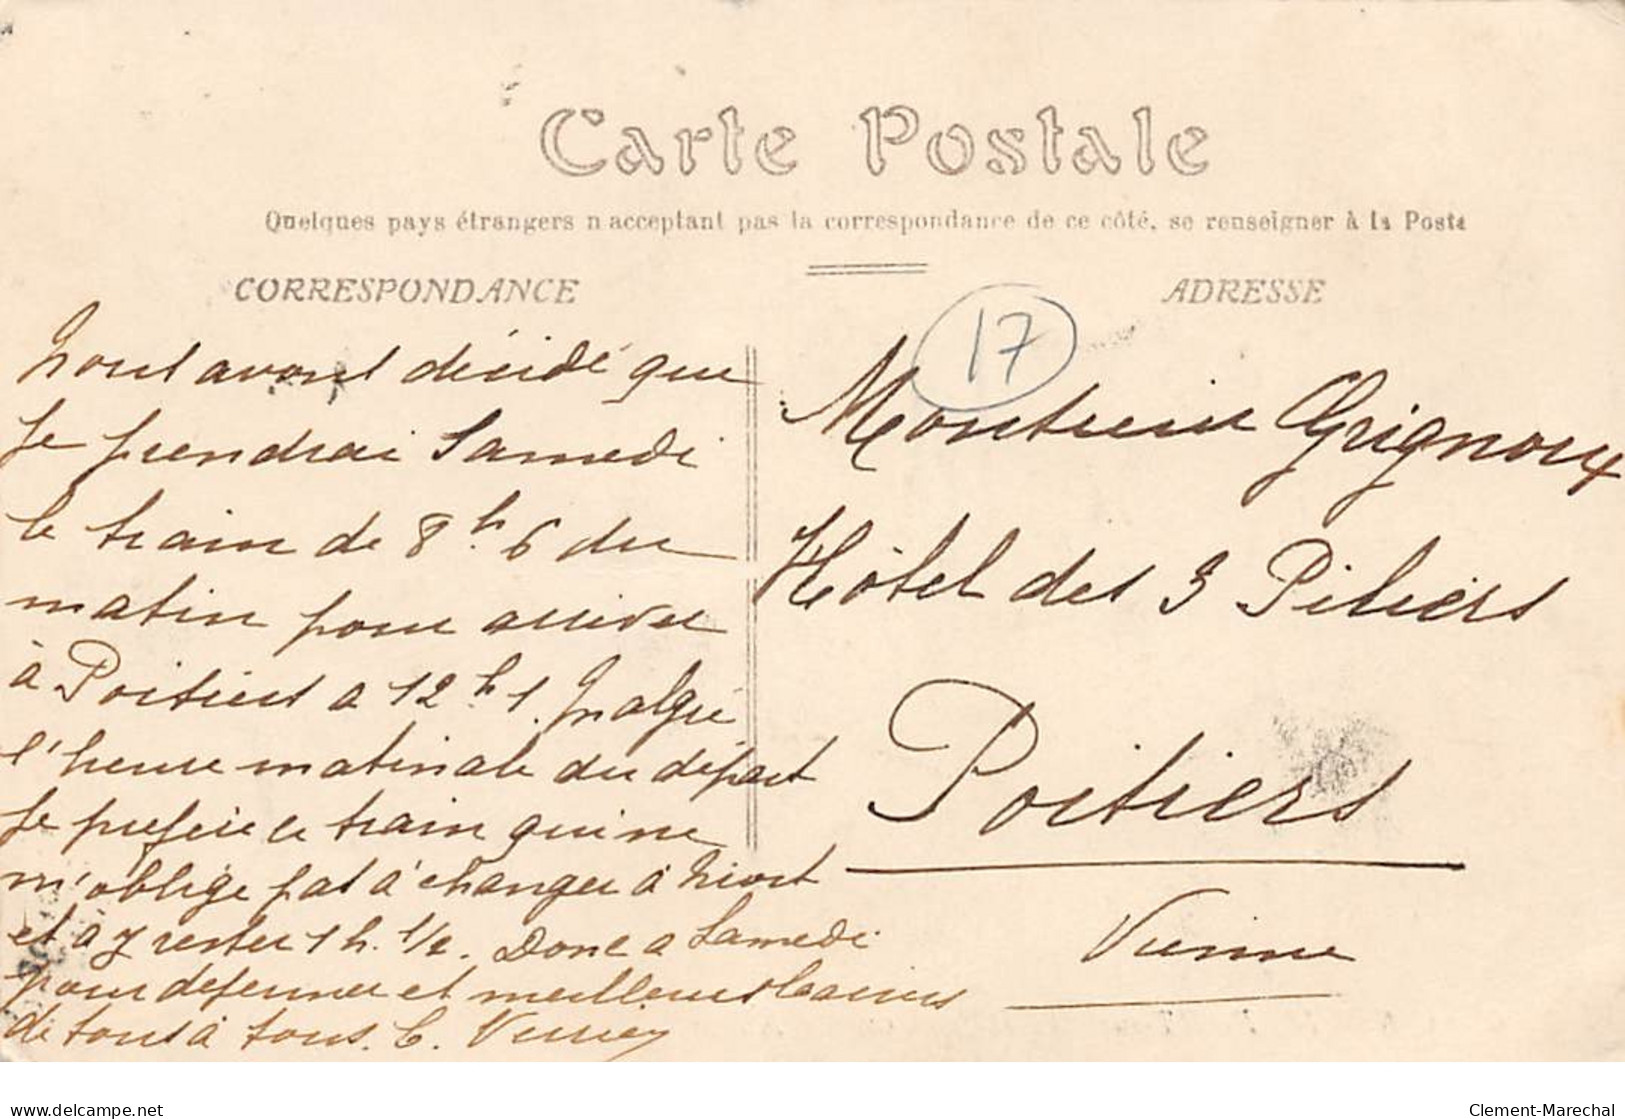 Carte Postale
Quelques pays étrangers n'acceptant pas la correspondance de ce côté, se renseigner à la Poste
CORRESPONDANCE
Nous avons décidé que
je prendrai Samedi
le train de 8h 6 du
matin pour arriver
à Poitiers à 12h1. Malgré
l'heure matinale du départ
je préfère le train qui ne
m'oblige pas à changer à Niort
et à y rester 1h. 1/2. Donc à Samedi
pour déjeuner et meilleurs baisers
de tous à tous. C.
ADRESSE
17
Monsieur Grignoux
Hôtel des 3 Piliers
Poitiers
Vienne
delcampe.net
Clement-Marechal